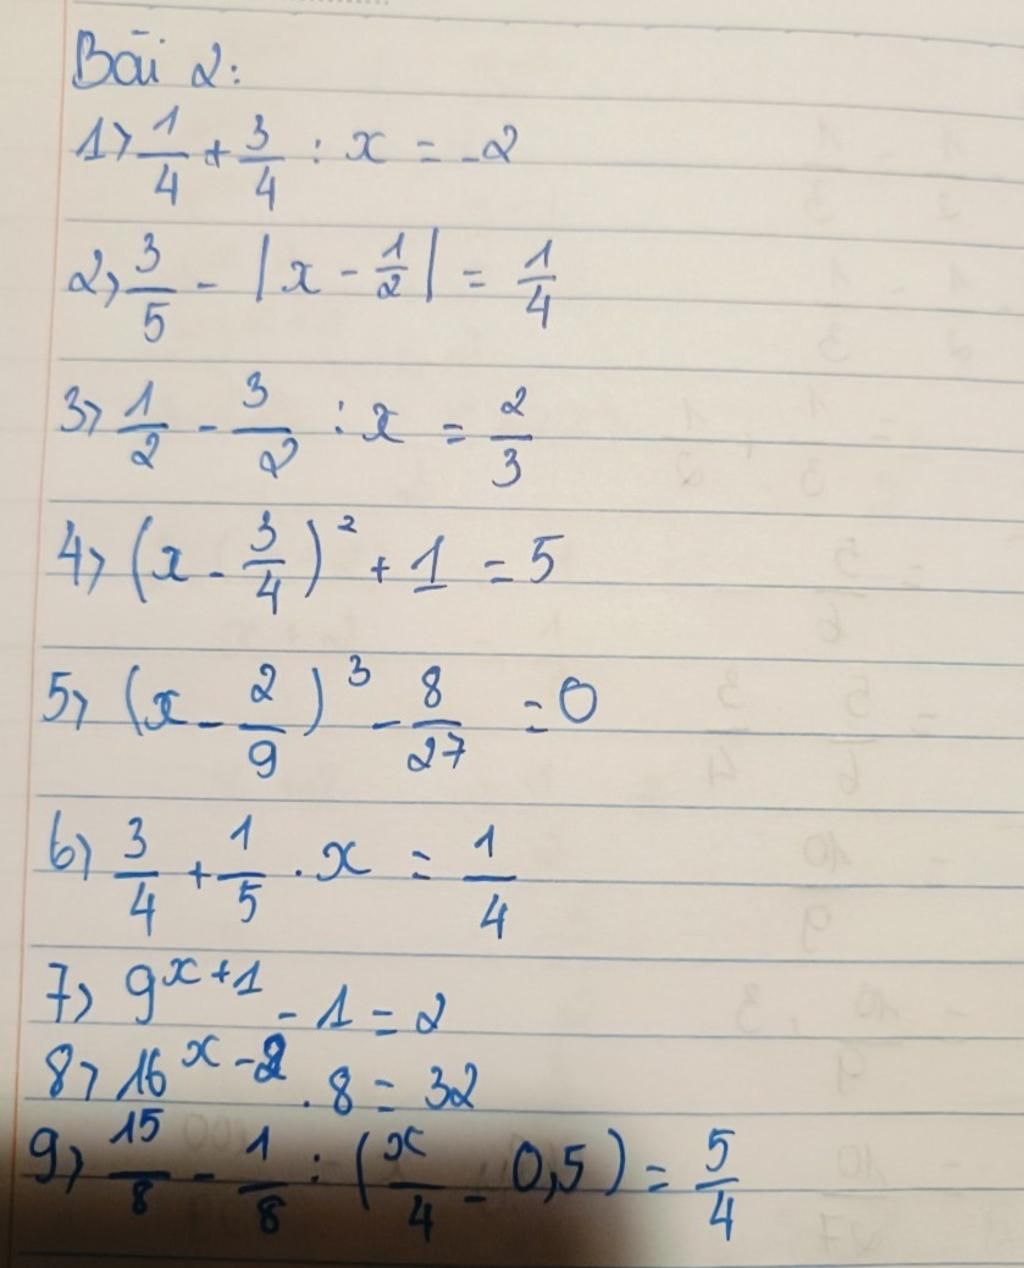 Bài 2:
1> 1/4 + 3/4 : x = -2
2> 3/5 - |x - 1/2| = 1/4
3> 1/2 - 3/2 : x = 2/3
4> (x - 3/4)² + 1 = 5
5> (x - 2/9)³ - 8/27 = 0
6> 3/4 + 1/5 . x = 1/4
7> 9^(x+1) - 1 = 2
8> 16^(x-2) . 8 = 32
9> 15/8 - 1/8 : (x/4 - 0,5) = 5/4